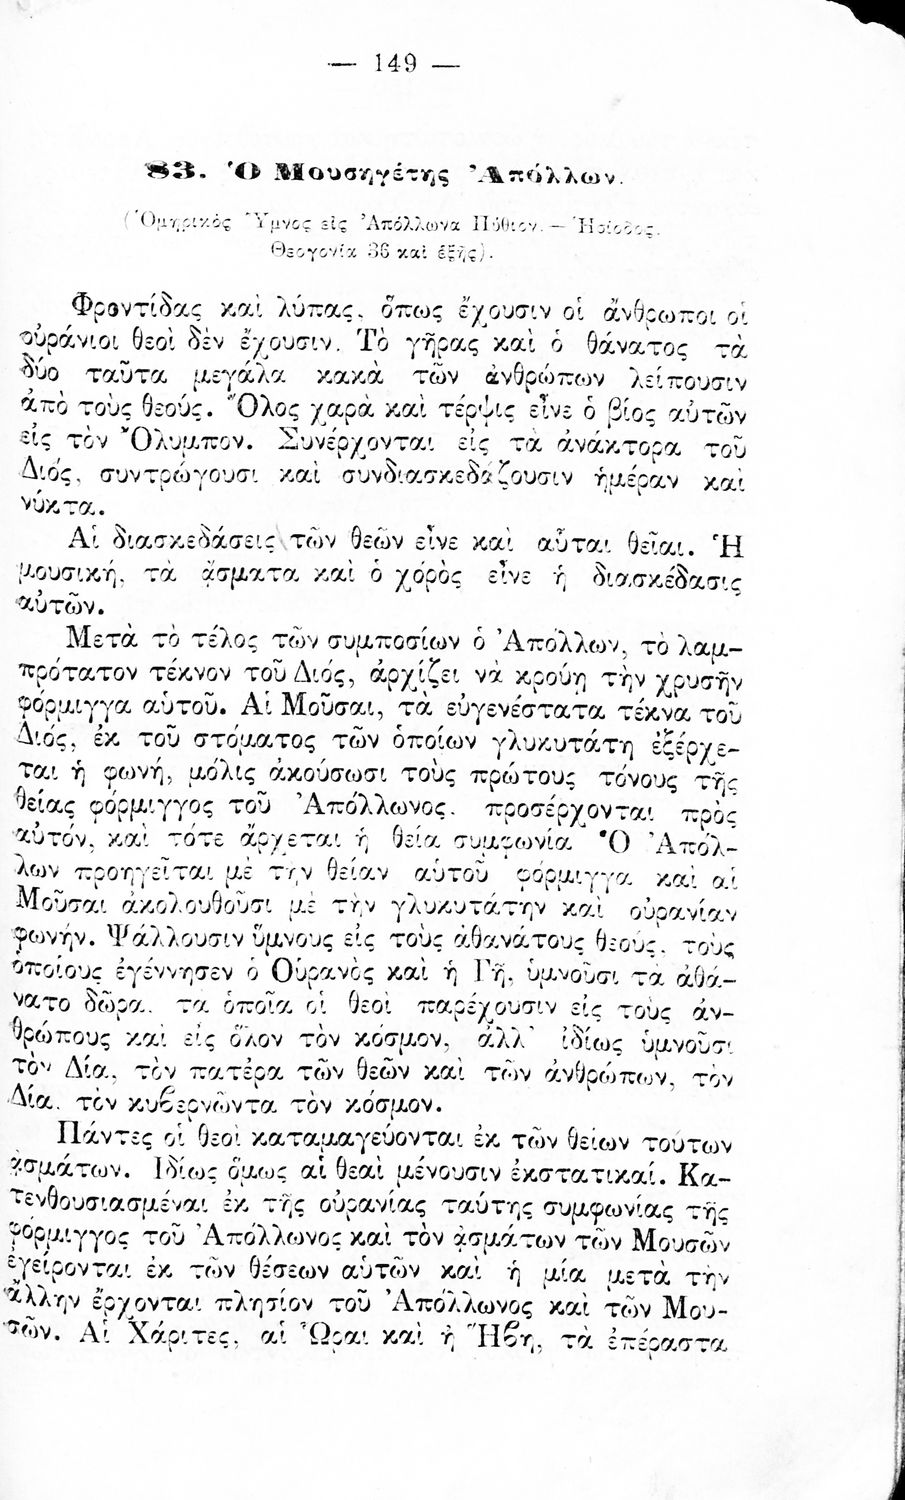 — 149 —
83. Ὁ Μουσηγέτης Ἀπόλλων.
(Ὁμηρικὸς Ὕμνος εἰς Ἀπόλλωνα Πύθιον. — Ἡσίοδος.
Θεογονία 36 καὶ ἑξῆς).
Φροντίδας καὶ λύπας, ὅπως ἔχουσιν οἱ ἄνθρωποι οἱ
οὐράνιοι θεοὶ δὲν ἔχουσιν. Τὸ γῆρας καὶ ὁ θάνατος τὰ
δύο ταῦτα μεγάλα κακὰ τῶν ἀνθρώπων λείπουσιν
ἀπὸ τοὺς θεούς. Ὅλος χαρὰ καὶ τέρψις εἶνε ὁ βίος αὐτῶν
εἰς τὸν Ὄλυμπον. Συνέρχονται εἰς τὰ ἀνάκτορα τοῦ
Διός, συντρώγουσι καὶ συνδιασκεδάζουσιν ἡμέραν καὶ
νύκτα.
Αἱ διασκεδάσεις τῶν θεῶν εἶνε καὶ αὗται θεῖαι. Ἡ
μουσική, τὰ ᾄσματα καὶ ὁ χόρὸς εἶνε ἡ διασκέδασις
αὐτῶν.
Μετὰ τὸ τέλος τῶν συμποσίων ὁ Ἀπόλλων, τὸ λαμ-
πρότατον τέκνον τοῦ Διός, ἀρχίζει νὰ κρούῃ τὴν χρυσῆν
φόρμιγγα αὑτοῦ. Αἱ Μοῦσαι, τὰ εὐγενέστατα τέκνα τοῦ
Διός, ἐκ τοῦ στόματος τῶν ὁποίων γλυκυτάτη ἐξέρχε-
ται ἡ φωνή, μόλις ἀκούσωσι τοὺς πρώτους τόνους τῆς
θείας φόρμιγγος τοῦ Ἀπόλλωνος. προσέρχονται πρὸς
αὐτόν, καὶ τότε ἄρχεται ἡ θεία συμφωνία Ὁ Ἀπόλ-
λων προηγεῖται μὲ τὴν θείαν αὑτοῦ φόρμιγγα καὶ αἱ
Μοῦσαι ἀκολουθοῦσι μὲ τὴν γλυκυτάτην καὶ οὐρανίαν
φωνήν. Ψάλλουσιν ὕμνους εἰς τοὺς ἀθανάτους θεούς, τοὺς
ὁποίους ἐγέννησεν ὁ Οὐρανὸς καὶ ἡ Γῆ, ὑμνοῦσι τὰ ἀθά-
νατο δῶρα, τὰ ὁποῖα οἱ θεοὶ παρέχουσιν εἰς τοὺς ἀν-
θρώπους καὶ εἰς ὅλον τὸν κόσμον, ἀλλ' ἰδίως ὑμνοῦσι
τὸν Δία, τὸν πατέρα τῶν θεῶν καὶ τῶν ἀνθρώπων, τὸν
Δία, τὸν κυβερνῶντα τὸν κόσμον.
Πάντες οἱ θεοὶ καταμαγεύονται ἐκ τῶν θείων τούτων
ᾀσμάτων. Ἰδίως ὅμως αἱ θεαὶ μένουσιν ἐκστατικαί. Κα-
τενθουσιασμέναι ἐκ τῆς οὐρανίας ταύτης συμφωνίας τῆς
φόρμιγγος τοῦ Ἀπόλλωνος καὶ τὸν ᾀσμάτων τῶν Μουσῶν
ἐγείρονται ἐκ τῶν θέσεων αὑτῶν καὶ ἡ μία μετὰ τὴν
ἄλλην ἔρχονται πλησίον τοῦ Ἀπόλλωνος καὶ τῶν Μου-
σῶν. Αἱ Χάριτες, αἱ Ὧραι καὶ ἡ Ἥβη, τὰ ἐπέραστα